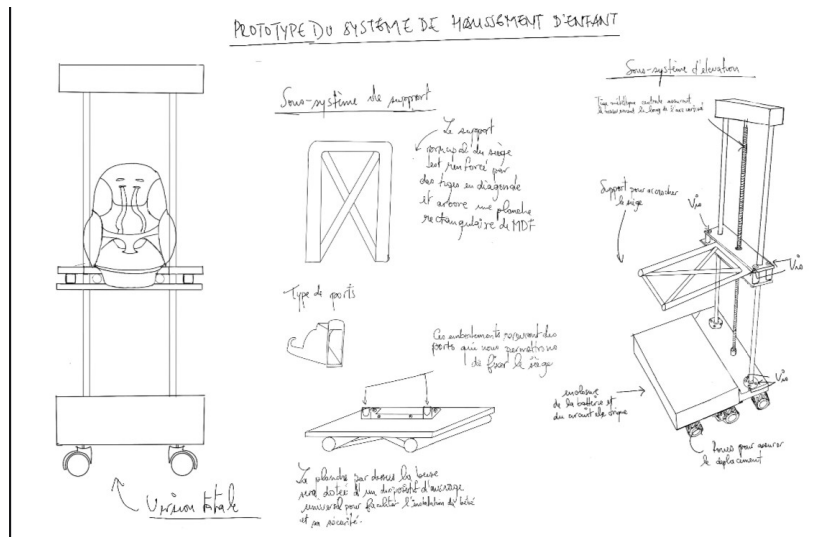 PROTOTYPE DU SYSTÈME DE HAUSSEMENT D'ENFANT
Sous-système de support
Le support
du siège
est renforcé par
des tiges en diagonale
et arbore une planche
rectangulaire de MDF
Type de ports
Ces emboitements
ports qui nous permettrons
de fixer le siège
La planche par dessus la base
sera dotée d'un dispositif d'ancrage
universel pour faciliter l'installation du bébé
et sa sécurité.
Version totale
Sous-système d'élévation
Tige métallique centrale assurant
le long de l'axe vertical
Support pour accrocher
le siège
Vis
Vis
Vis
enclosure
de la batterie et
du circuit électrique
roues pour assurer
le déplacement